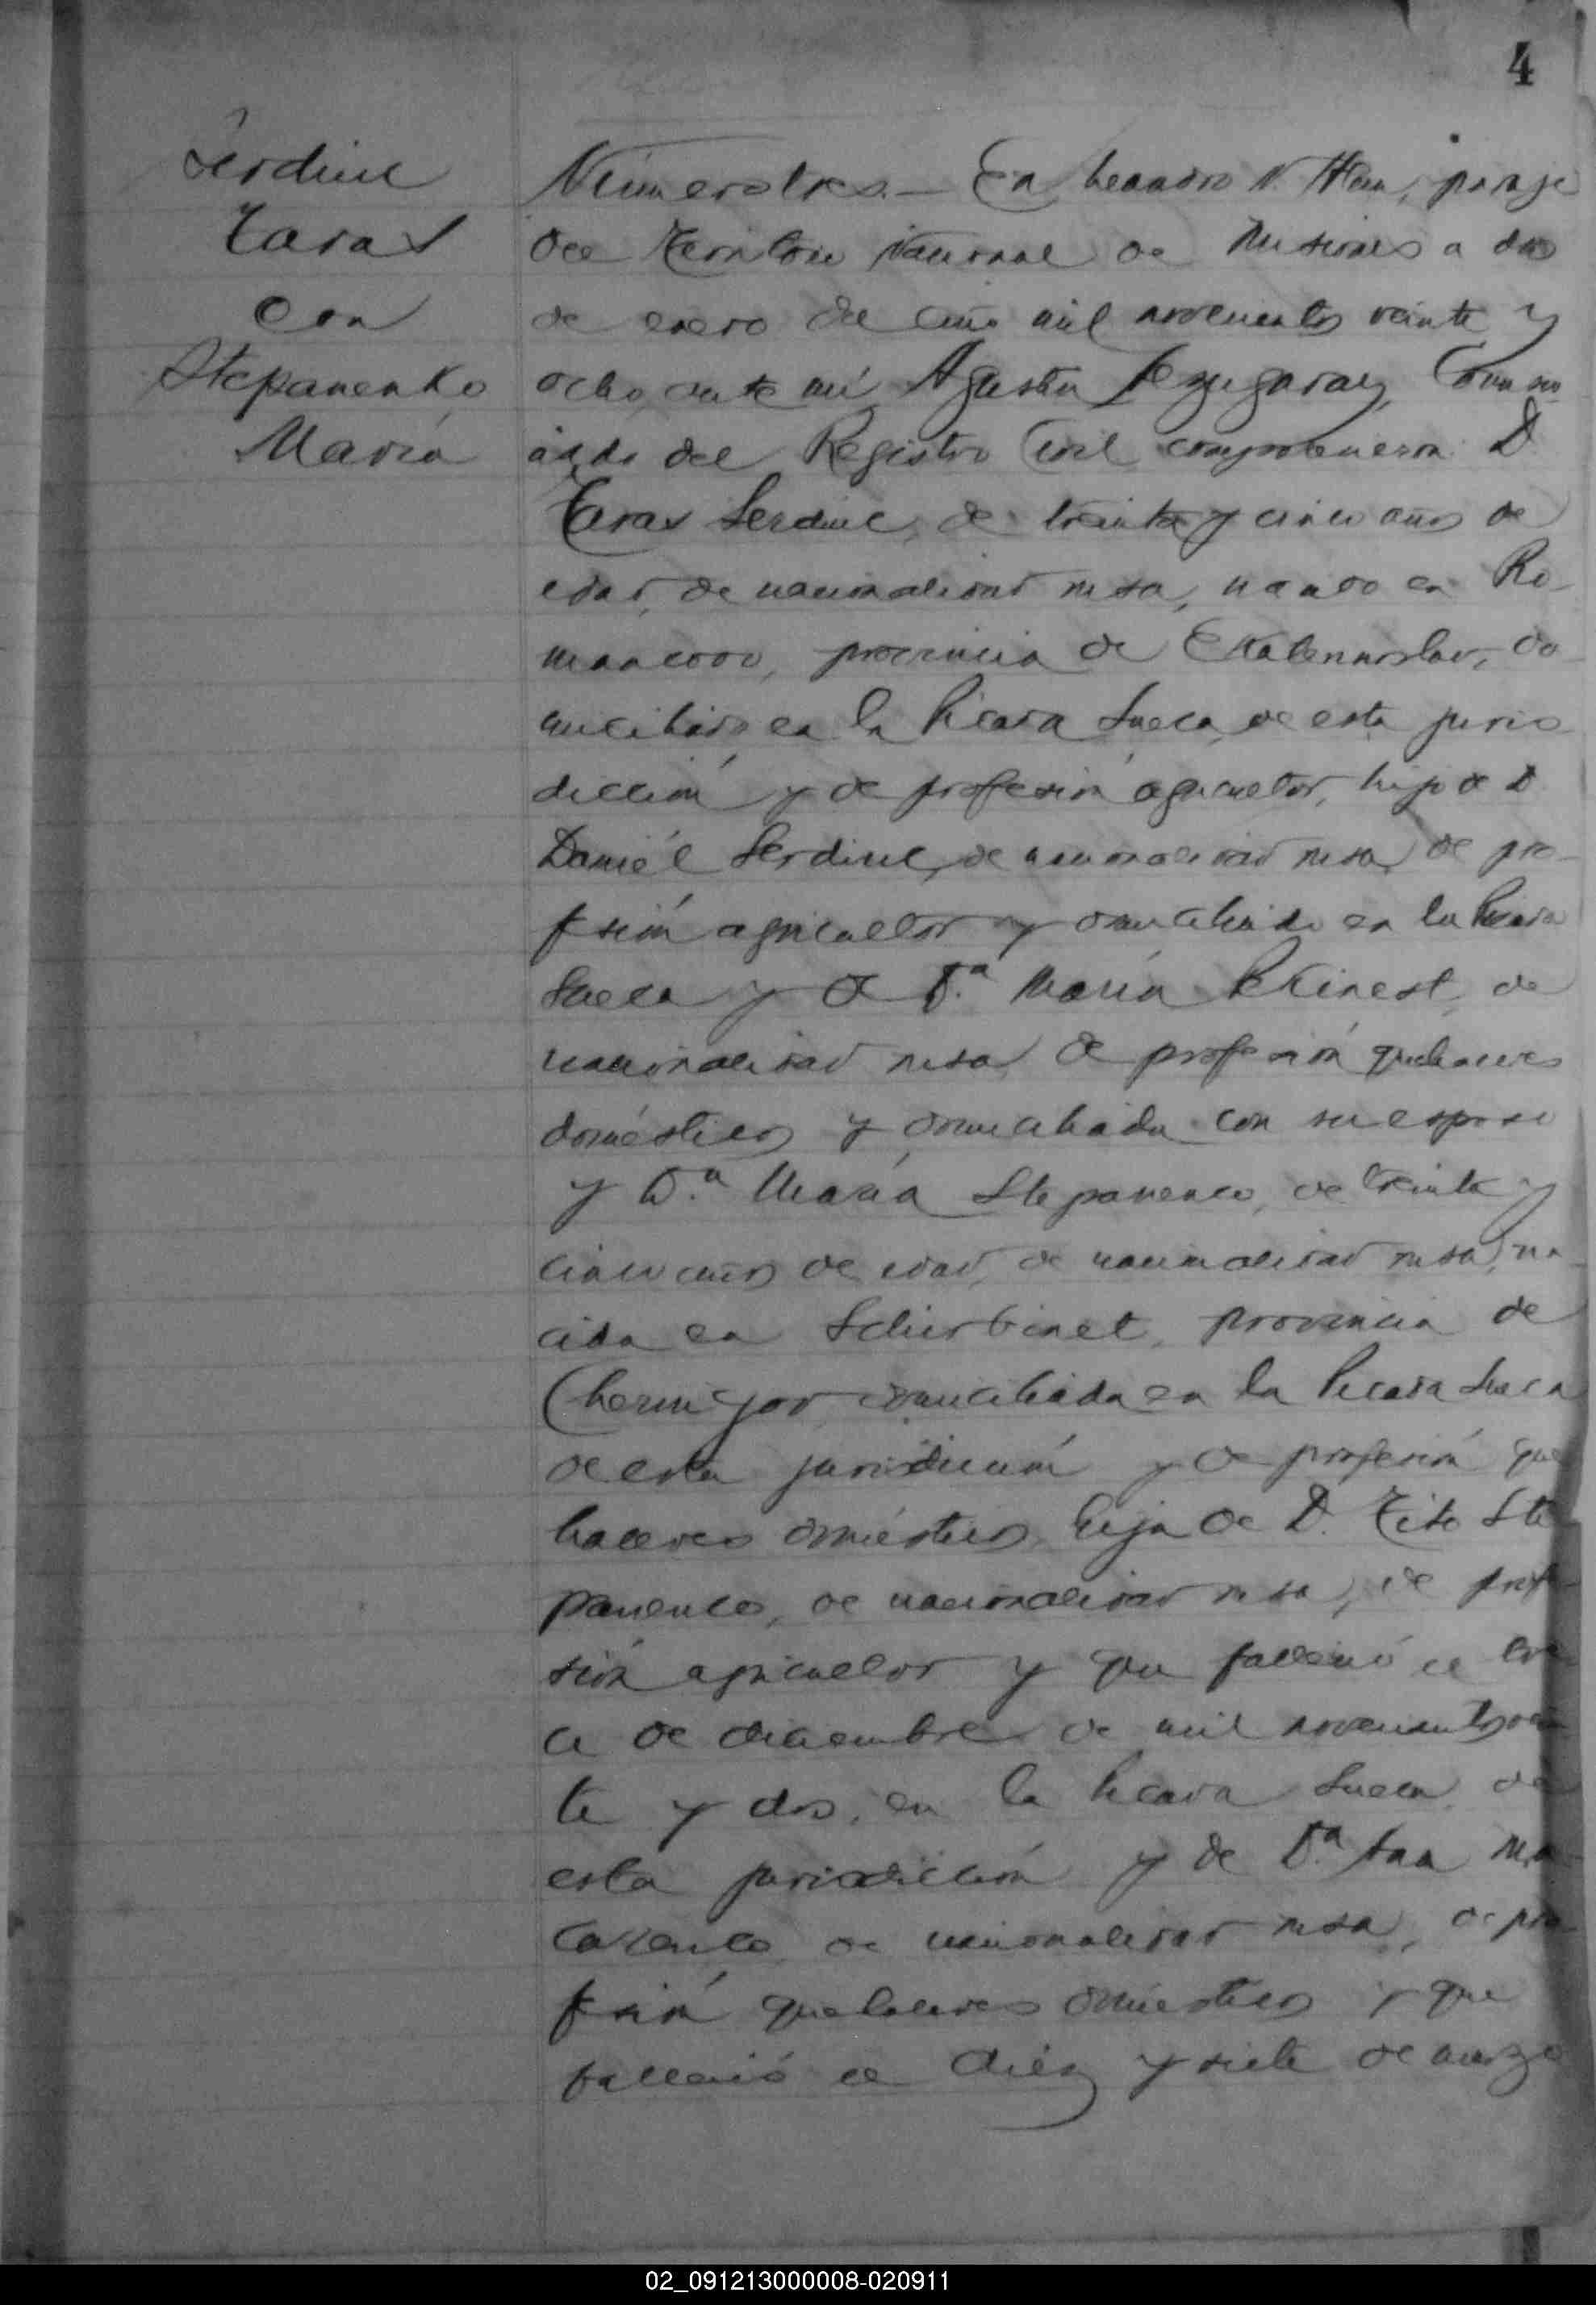 4
Serdiuc
Taras
con
Stepanenko
María
Número tres.— En Leandro N. Alem, paraje
del Territorio Nacional de Misiones a dos
de enero del año mil novecientos veinte y
ocho, ante mí, Agustin Comi
del Registro Civil comparecieron: D.
Taras Serdiuc, de treinta y cinco años de
edad, de nacionalidad rusa, nacido en Ro-
mancovo, provincia de Ekaterinoslav, do-
miciliado en la Picada Sueca, de esta juris-
dicción y de profesión agricultor, hijo de D.
Daniél Serdiuc, de nacionalidad rusa, de pro-
fesión agricultor y domiciliado en la Picada
Sueca y de D.ª María de
nacionalidad rusa, de profesión quehaceres
domésticos y domiciliada con su esposo
y D.ª María Stepanenco, de treinta y
cinco años de edad, de nacionalidad rusa, na-
cida en provincia de
Chernigov domiciliada en la Picada Sueca
de esta jurisdicción y de profesión que
haceres domésticos, hija de D. Tito Ste
panenco, de nacionalidad rusa, de profe
sión agricultor y que falleció el tre
ce de diciembre de mil novecientos vein
te y dos, en la Picada Sueca, de
esta jurisdicción y de D.ª Ana Ma
carenco, de nacionalidad rusa, de pro-
fesión quehaceres domésticos y que
falleció el diez y siete de marzo
02_091213000008-020911